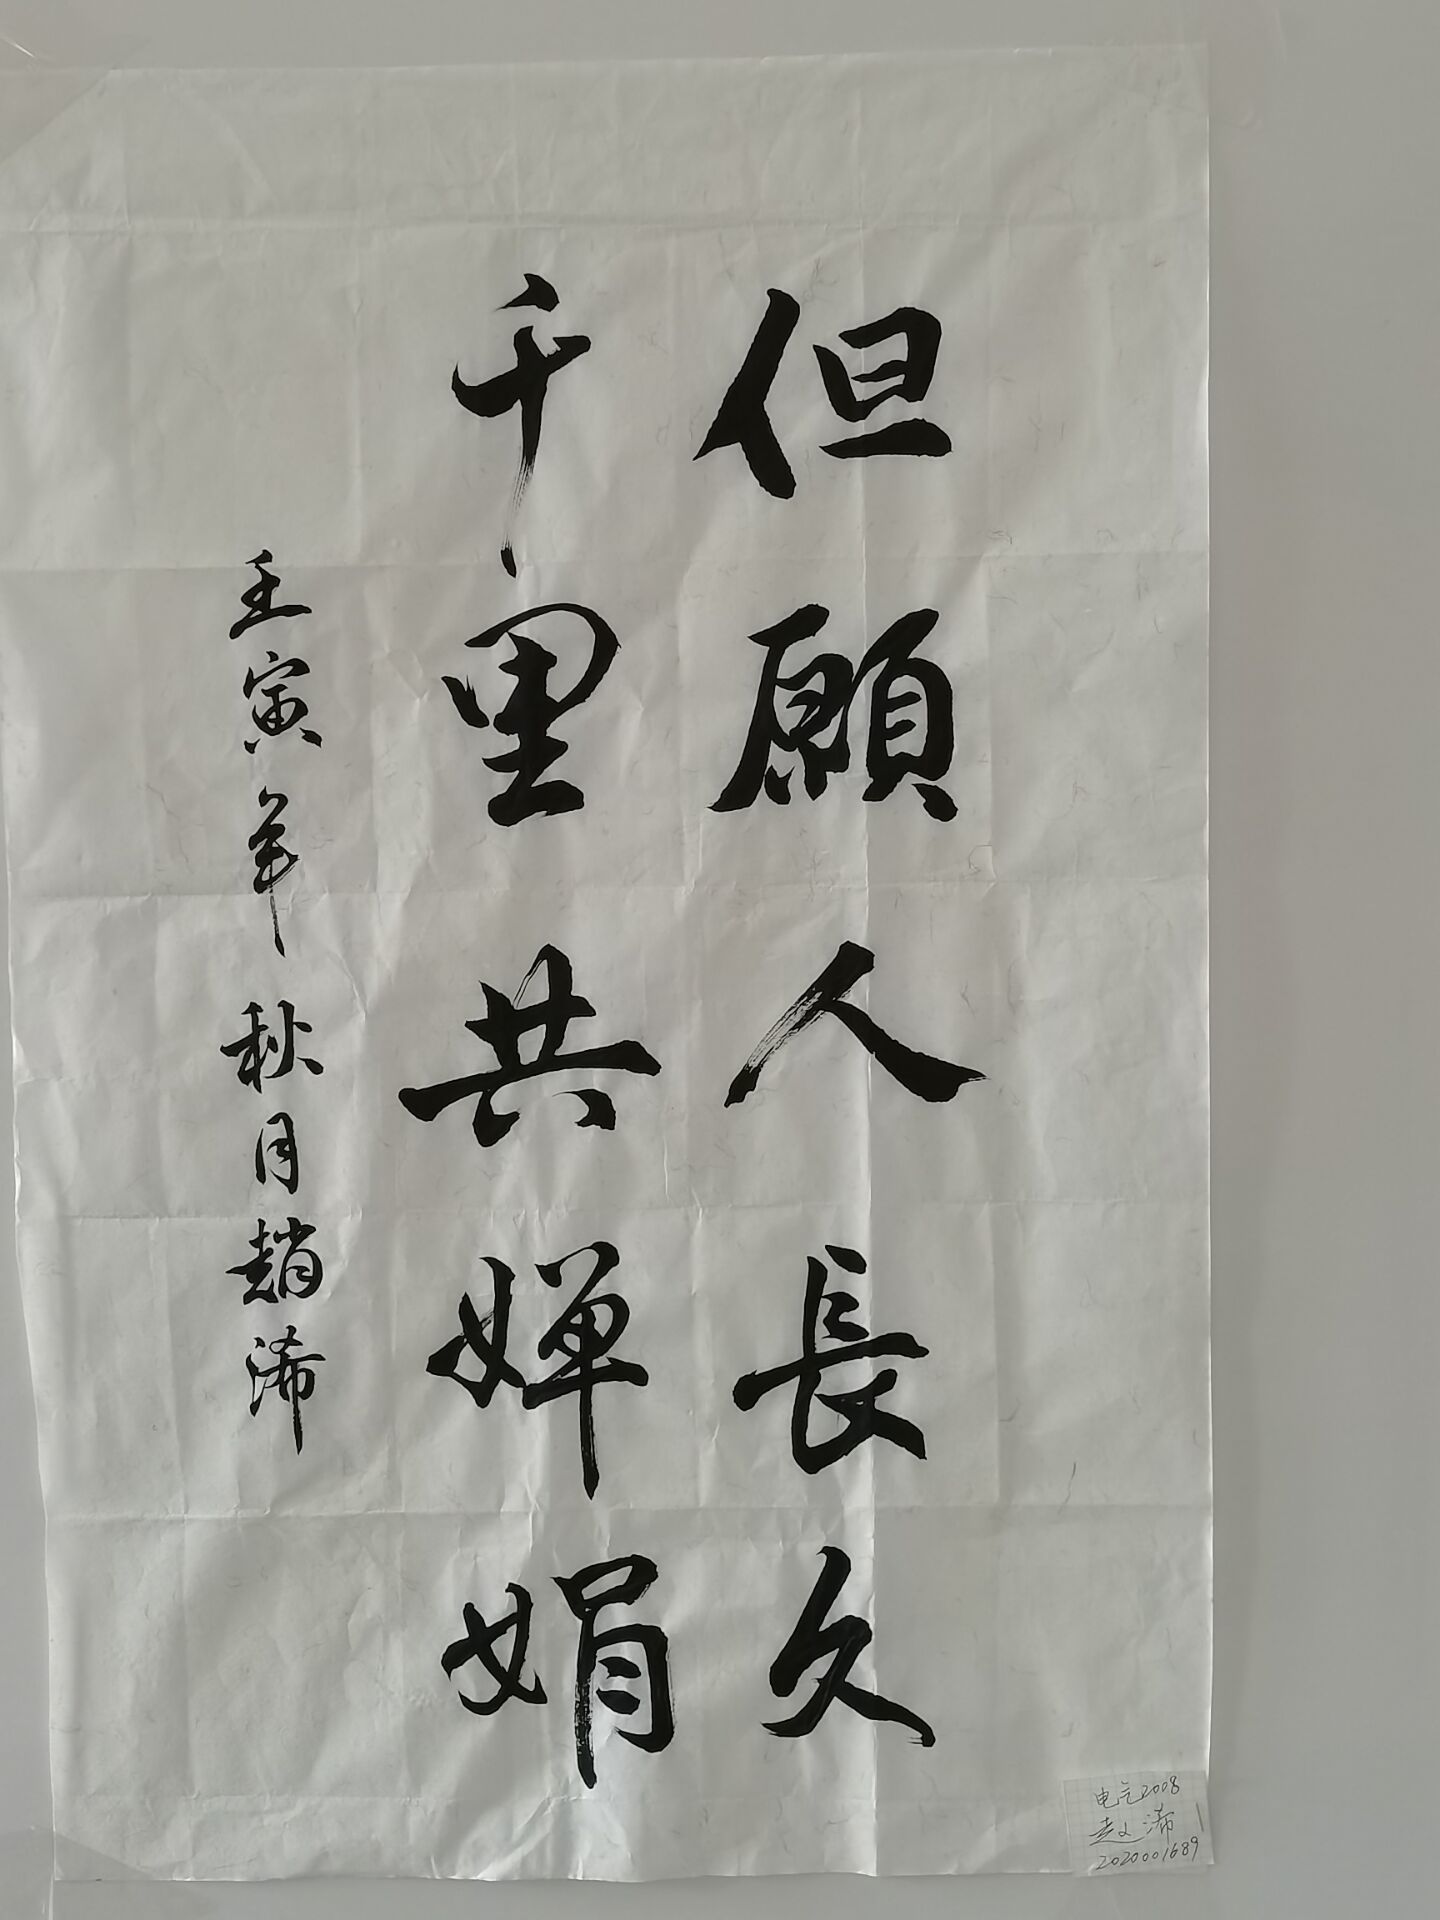 但願人長久
千里共婵娟
壬寅年秋月趙浠
电气2008
赵浠
2020001689